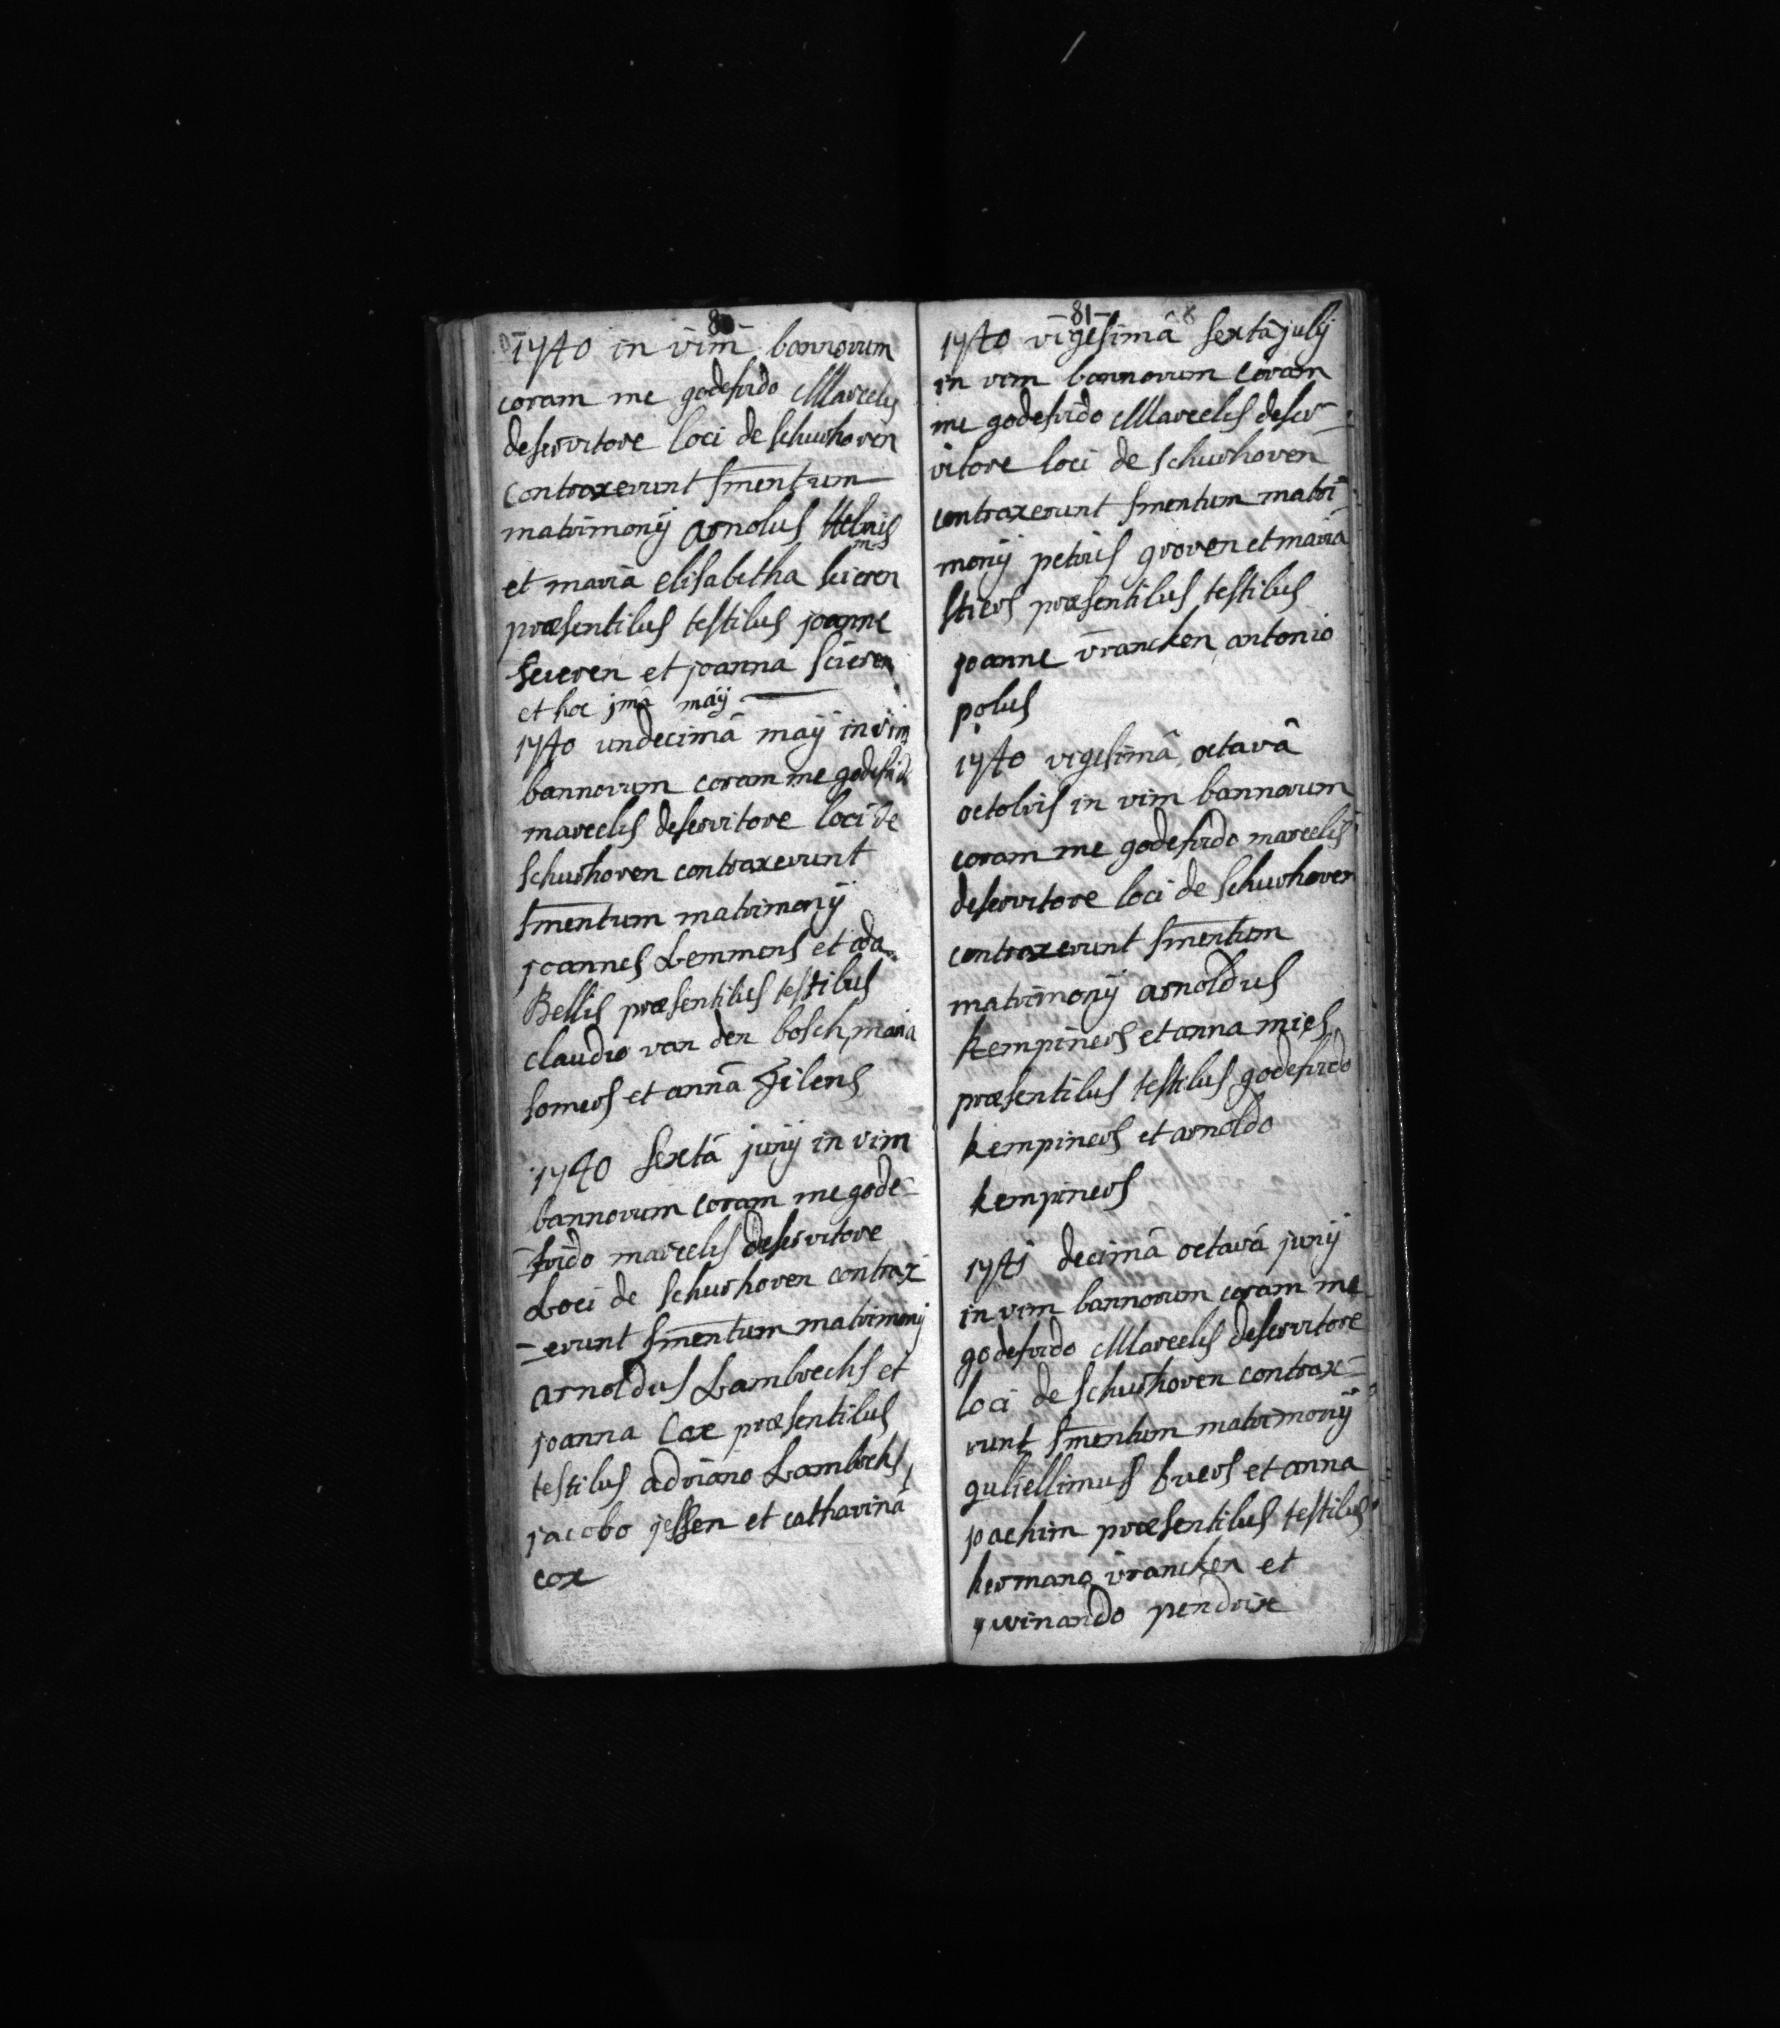 80
1740 in vim bannorum
coram me godefrido Marcelis
deservitore loci de schurhoven
contraxerunt smentum
matrimonij arnolus Helmis
ms
et maria elisabetha seieren
præsentibus testibus joanne
seieren et joanna scieren
et hoc jmâ maij
1740 undecimâ maij in vim
bannorum coram me godefrido
marcelis deservitore loci de
schurhoven contraxerunt
smentum matrimonij
joannes Lemmens et ida
Bellis præsentibus testibus
claudio van den bosch, maria
somers et annâ Filens
1740 sextâ junij in vim
bannorum coram me gode-
-frido marcelis deservitore
Loci de schurhoven contrax
-erunt smentum matrimonij
arnoldus Lambrechs et
joanna Cox præsentibus
testibus adriano Lambrechs,
jacobo jessen et catharinâ
cox
81
1740 vigesimâ sextâ julij
in vim bannorum coram
me godefrido Marcelis deser-
vitore loci de schurhoven
contraxerunt smentum matri-
monij petrus groven et maria
stiers præsentibus testibus
joanne vrancken, antonio
polus
1740 vigesimâ octavâ
octobris in vim bannorum
coram me godefrido marcelis
deservitore loci de schurhoven
contraxerunt smentum
matrimonij arnoldus
kempineers et anna mies
præsentibus testibus godefrido
kempineers et arnoldo
kempineers
1741 decimâ octavâ junij
in vim bannorum coram me
godefrido Marcelis deservitore
loci de schurhoven contrax-
runt smentum matrimonij
guliellimus bvers et anna
joachim præsentibus testibus
hermano vrancken et
winando pendrix